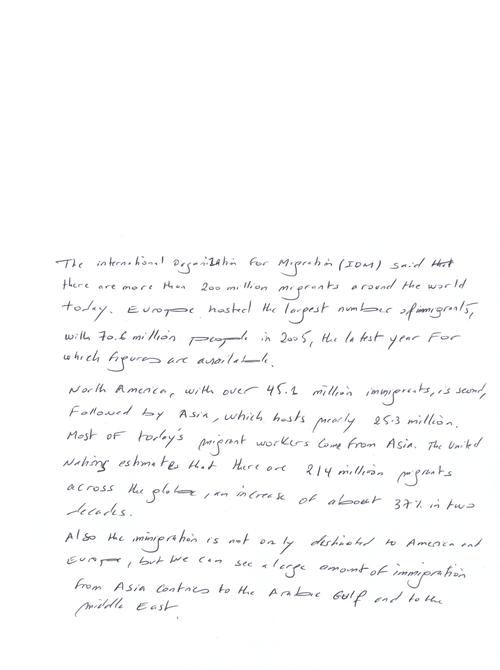 The international Organization For Migration (IOM) said that
there are more than 200 million migrants around the world
today. Europe hosted the largest number of immigrants,
with 70.6 million people in 2005, the latest year For
which figures are available.
North America, with over 45.1 million immigrants, is second,
Followed by Asia, which hosts nearly 25.3 million.
Most of today's migrant workers come from Asia. The United
Nations estimates that there are 214 million migrants
across the globe, an increase of about 37% in two
decades.
Also the immigration is not only destinated to America and
Europe, but we can see a large amount of immigration
from Asia contries to the Arabic Gulf and to the
middle East.